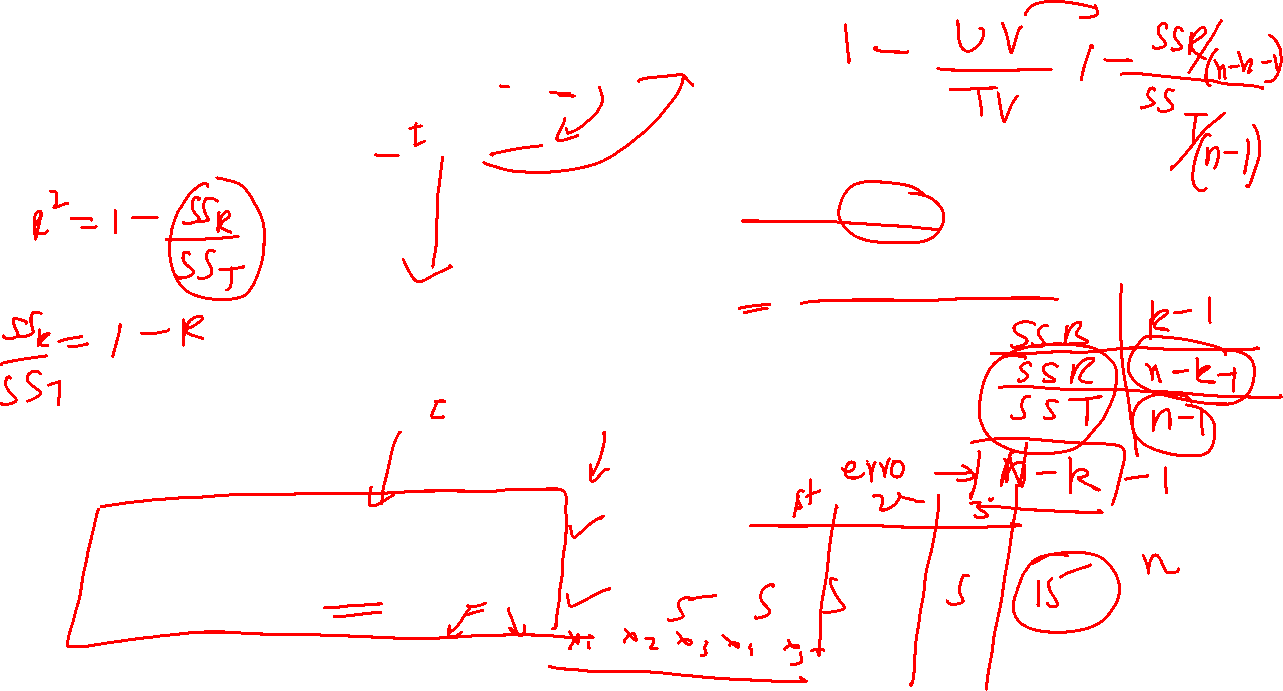 1 - UV/TV 1 - SSR/(n-k-1) / SST/(n-1)
R² = 1 - SSR/SST
SSR/SST = 1 - R
SSB k-1
SSR n-k-1
SST n-1
erro → N-k -1
5 5 5 5 15 n
x1 x2 x3 x4 x5